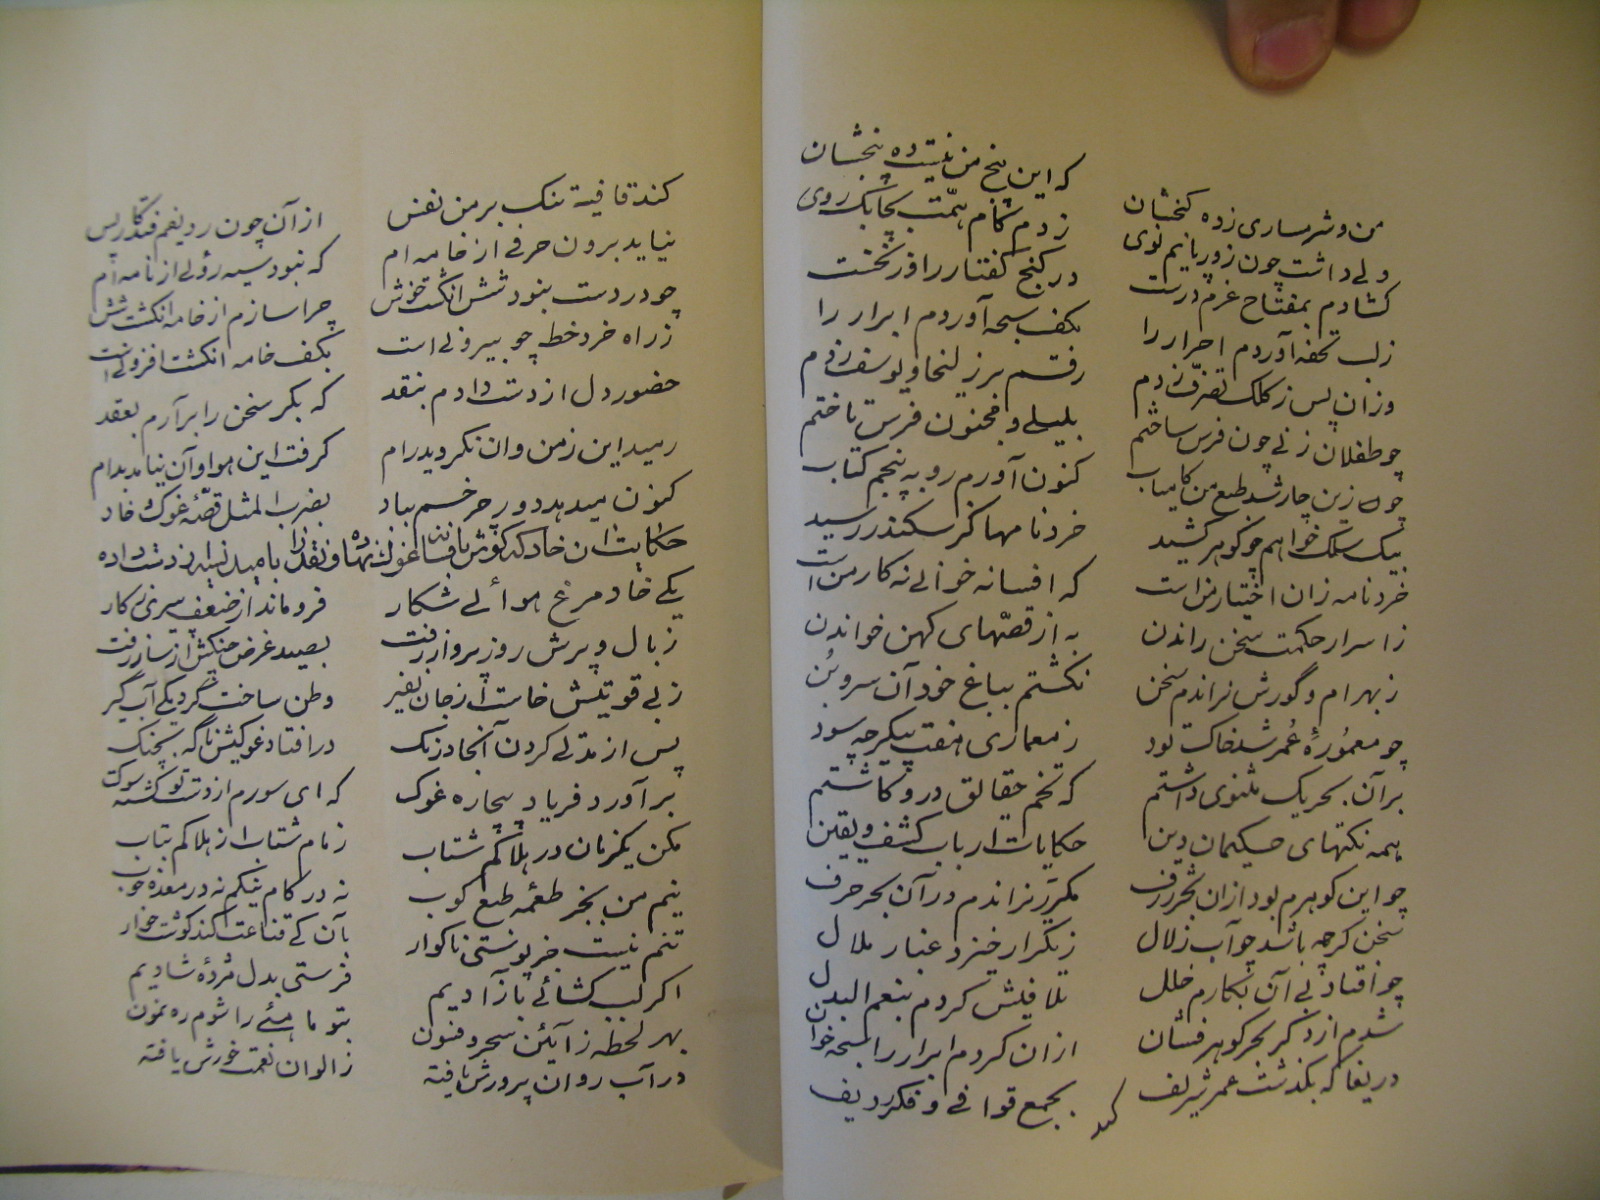 من و شرمساری زده کنجشان که این پنج من نیست ده پنجشان
ولی داشت چون زور پا نیم نوی زدم گام همت بچابک روی
کشادم بمفتاح عزم درست در گنج گفتار را از نخست
زلب تحفه آوردم احرار را بکف سبحه آوردم ابرار را
وزان پس ز کلک تصرف زدم رقم بر زلیخا و یوسف زدم
چو طفلان زنی چون فرس ساختم بلیلی و مجنون فرس تاختم
چون زین چار شد طبع من کامیاب کنون آورم رو به پنجم کتاب
بیک سلک خواهم چو گوهر کشید خردنامها کز سکندر رسید
خردنامه زان اختیار من است که افسانه خوانی نه کار من است
ز اسرار حکمت سخن راندن به از قصهای کهن خواندن
ز بهرام و گورش نراندم سخن نکشتم بباغ خود آن سرو بن
چو معمورهٔ عمر شد خاک تود ز معماری هفت پیکر چه سود
بر آن بحر یک مثنوی داشتم که تخم حقائق در و کاشتم
همه نکتهای حکیمان دین حکایات ارباب کشف و یقین
چو این گوهرم بود ازان بحر ژرف مکرر نراندم در آن بحر حرف
سخن گرچه باشد چو آب زلال ز تکرار خیزد غبار ملال
چو افتاد نی آن بکارم خلل تلافیش کردم بنعم البدل
شدم از دگر بحر گوهر فشان ازان کردم ابرار را سبحه خوان
دریغا که بگذشت عمر شریف بجمع قوافی و فکر ردیف
کند
کند قافیه تنک بر من نفس از آن چون ردیفم فتد کار پس
نیاید برون حرفی از خامه ام که نبود سیه روئی از نامه ام
چو در دست بنود شش انگشت خوش چرا سازم از خامه انگشت شش
ز راه خرد خطه چو بیرونی است بکف خامه انگشت افزونی است
حضور دل از دست دادم بنقد که بکر سخن را برآرم بعقد
رمید این ز من وان نگردید رام گرفت این هوا و آن نیامد بدام
کنون میدهد دور چرخم بباد بضرب المثل قصهٔ غوک و خاد
حکایت آن خاد که غوک را بامید از دست داده
یکی خاد مرغ هوائی شکار فروماند از ضعف پیری ز کار
ز بال و پرش روز پرواز رفت بصید غرض چنگش از ساز رفت
ز بی قوتیش خاست از جان نفیر وطن ساخت گرد یکی آب گیر
پس از مدتی کردن آنجا درنگ در افتاد غوکیش ناگه بچنگ
برآورد فریاد بیچاره غوک که ای سورم از دست تو گشته سوک
مکن یکزمان در هلاکم شتاب زمام شتاب از هلاکم بتاب
نیم من بجز طعمه طبع کوب نه در کام نیکم نه در معده خوب
تنم نیست جز پوستی ناگوار بآن کی قناعت کند گوشت خوار
اگر لب کشائی بآزادیم فرستی بدل مژدهٔ شادیم
بهر لحظه ز آئین سحر و فنون بتو ماهئی را شوم رهنمون
در آب روان پرورش یافته ز الوان نعمت خورش یافته